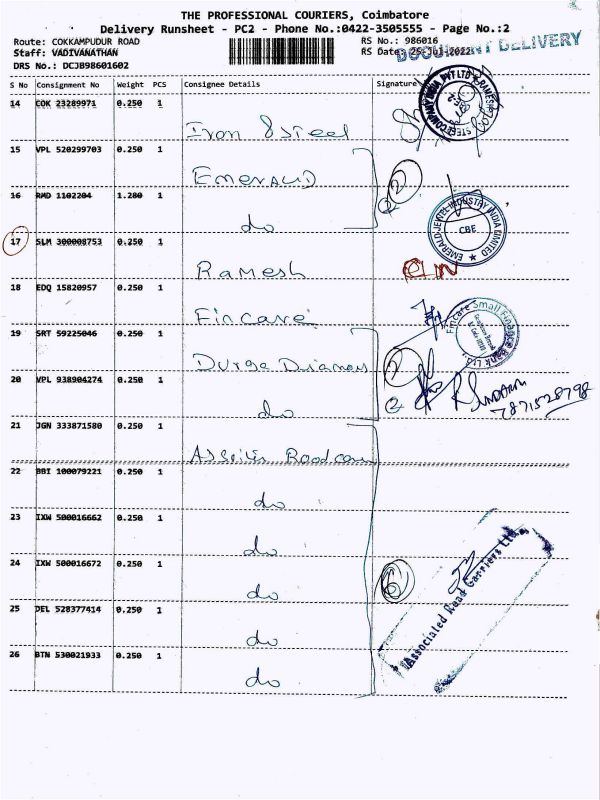 THE PROFESSIONAL COURIERS, Coimbatore
Delivery Runsheet - PC2 - Phone No.:0422-3505555 - Page No.:2
Route: COKKAMPUDUR ROAD
RS No.: 986016
Staff: VADIVANATHAN
RS Date: 25-Jul-2022
DOCUMENT DELIVERY
DRS No.: DCJB98601602
S No Consignment No Weight PCS Consignee Details Signature
14 COK 23289971 0.250 1
Iron & Steel
15 VPL 520299703 0.250 1
Emerald
2
16 RMD 1102204 1.280 1
do
EMERALD JEWEL INDUSTRY INDIA LIMITED
CBE
17 SLM 300008753 0.250 1
Ramesh
18 EDQ 15820957 0.250 1
Fincare
Fincare Small Finance Bank Ltd.
19 SRT 59225046 0.250 1
Durga
2
20 VPL 938904274 0.250 1
do
2
7871528798
21 JGN 333871580 0.250 1
22 BBI 100079221 0.250 1
do
23 IXW 500016662 0.250 1
do
24 IXW 500016672 0.250 1
do
6
Associated Road Carriers Ltd.
25 DEL 528377414 0.250 1
do
26 BTN 530021933 0.250 1
do